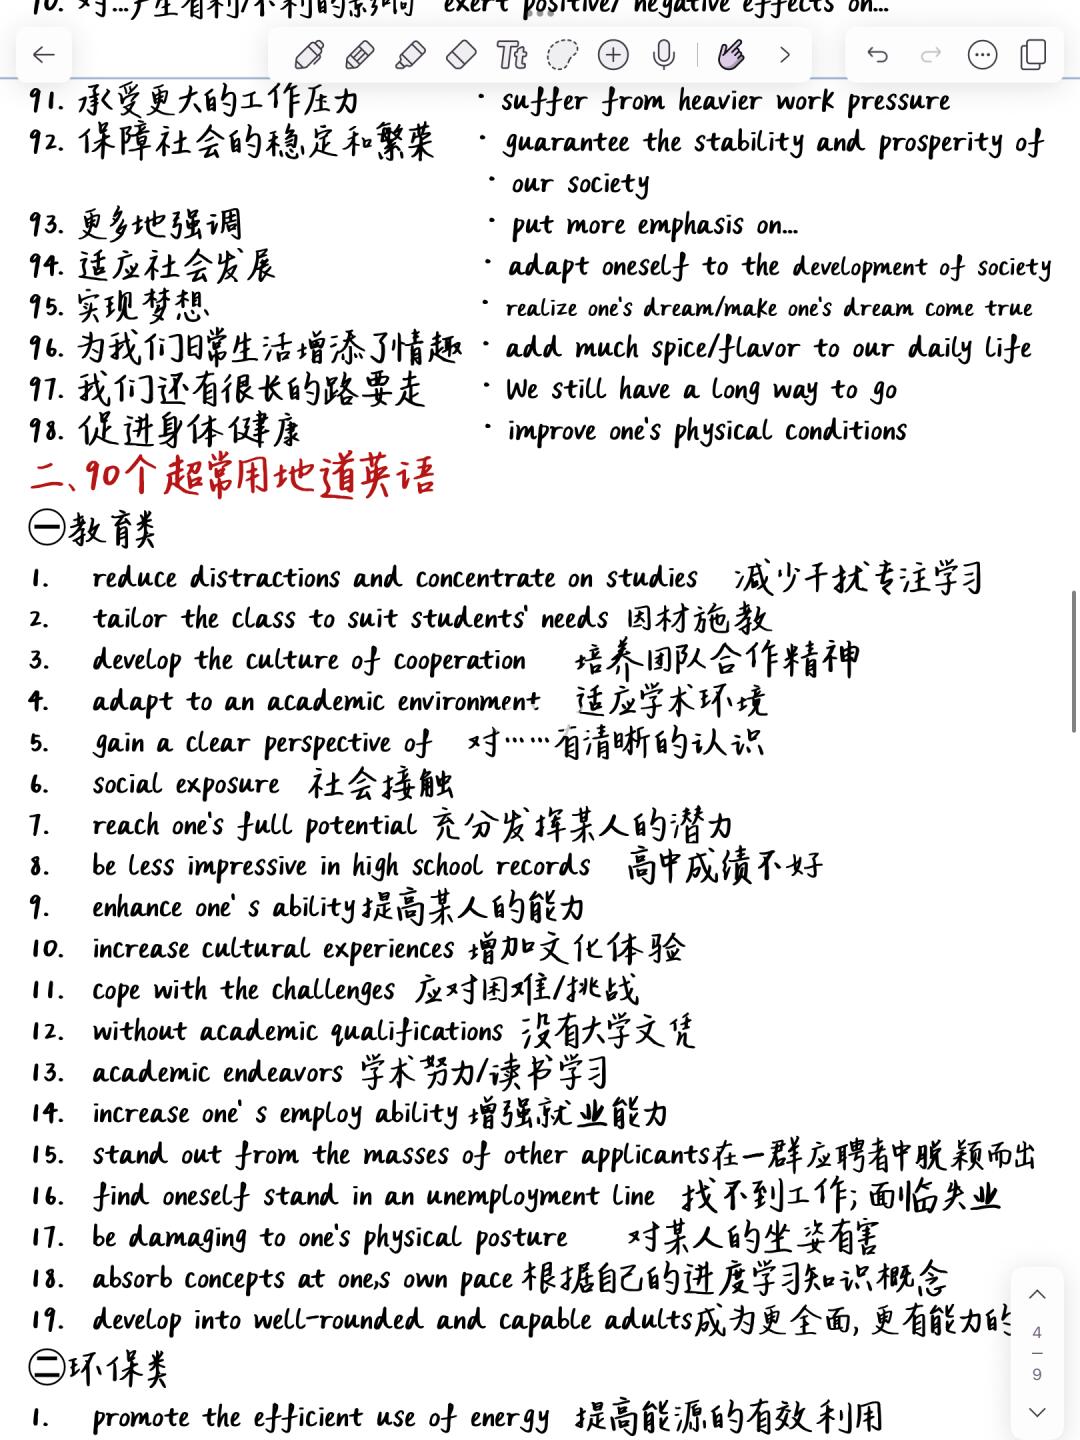 90. 对...产生有利/不利的影响 exert positive/ negative effects on...
Tt
91. 承受更大的工作压力 · suffer from heavier work pressure
92. 保障社会的稳定和繁荣 · guarantee the stability and prosperity of
· our society
93. 更多地强调 · put more emphasis on...
94. 适应社会发展 · adapt oneself to the development of society
95. 实现梦想 · realize one's dream/make one's dream come true
96. 为我们日常生活增添了情趣 · add much spice/flavor to our daily life
97. 我们还有很长的路要走 · We still have a long way to go
98. 促进身体健康 · improve one's physical conditions
二、90个超常用地道英语
㊀教育类
1. reduce distractions and concentrate on studies 减少干扰专注学习
2. tailor the class to suit students' needs 因材施教
3. develop the culture of cooperation 培养团队合作精神
4. adapt to an academic environment 适应学术环境
5. gain a clear perspective of 对……有清晰的认识
6. social exposure 社会接触
7. reach one's full potential 充分发挥某人的潜力
8. be less impressive in high school records 高中成绩不好
9. enhance one' s ability提高某人的能力
10. increase cultural experiences 增加文化体验
11. cope with the challenges 应对困难/挑战
12. without academic qualifications 没有大学文凭
13. academic endeavors 学术努力/读书学习
14. increase one' s employ ability 增强就业能力
15. stand out from the masses of other applicants在一群应聘者中脱颖而出
16. find oneself stand in an unemployment line 找不到工作; 面临失业
17. be damaging to one's physical posture 对某人的坐姿有害
18. absorb concepts at one,s own pace 根据自己的进度学习知识概念
19. develop into well-rounded and capable adults成为更全面, 更有能力的
㊁环保类
1. promote the efficient use of energy 提高能源的有效利用
4
9